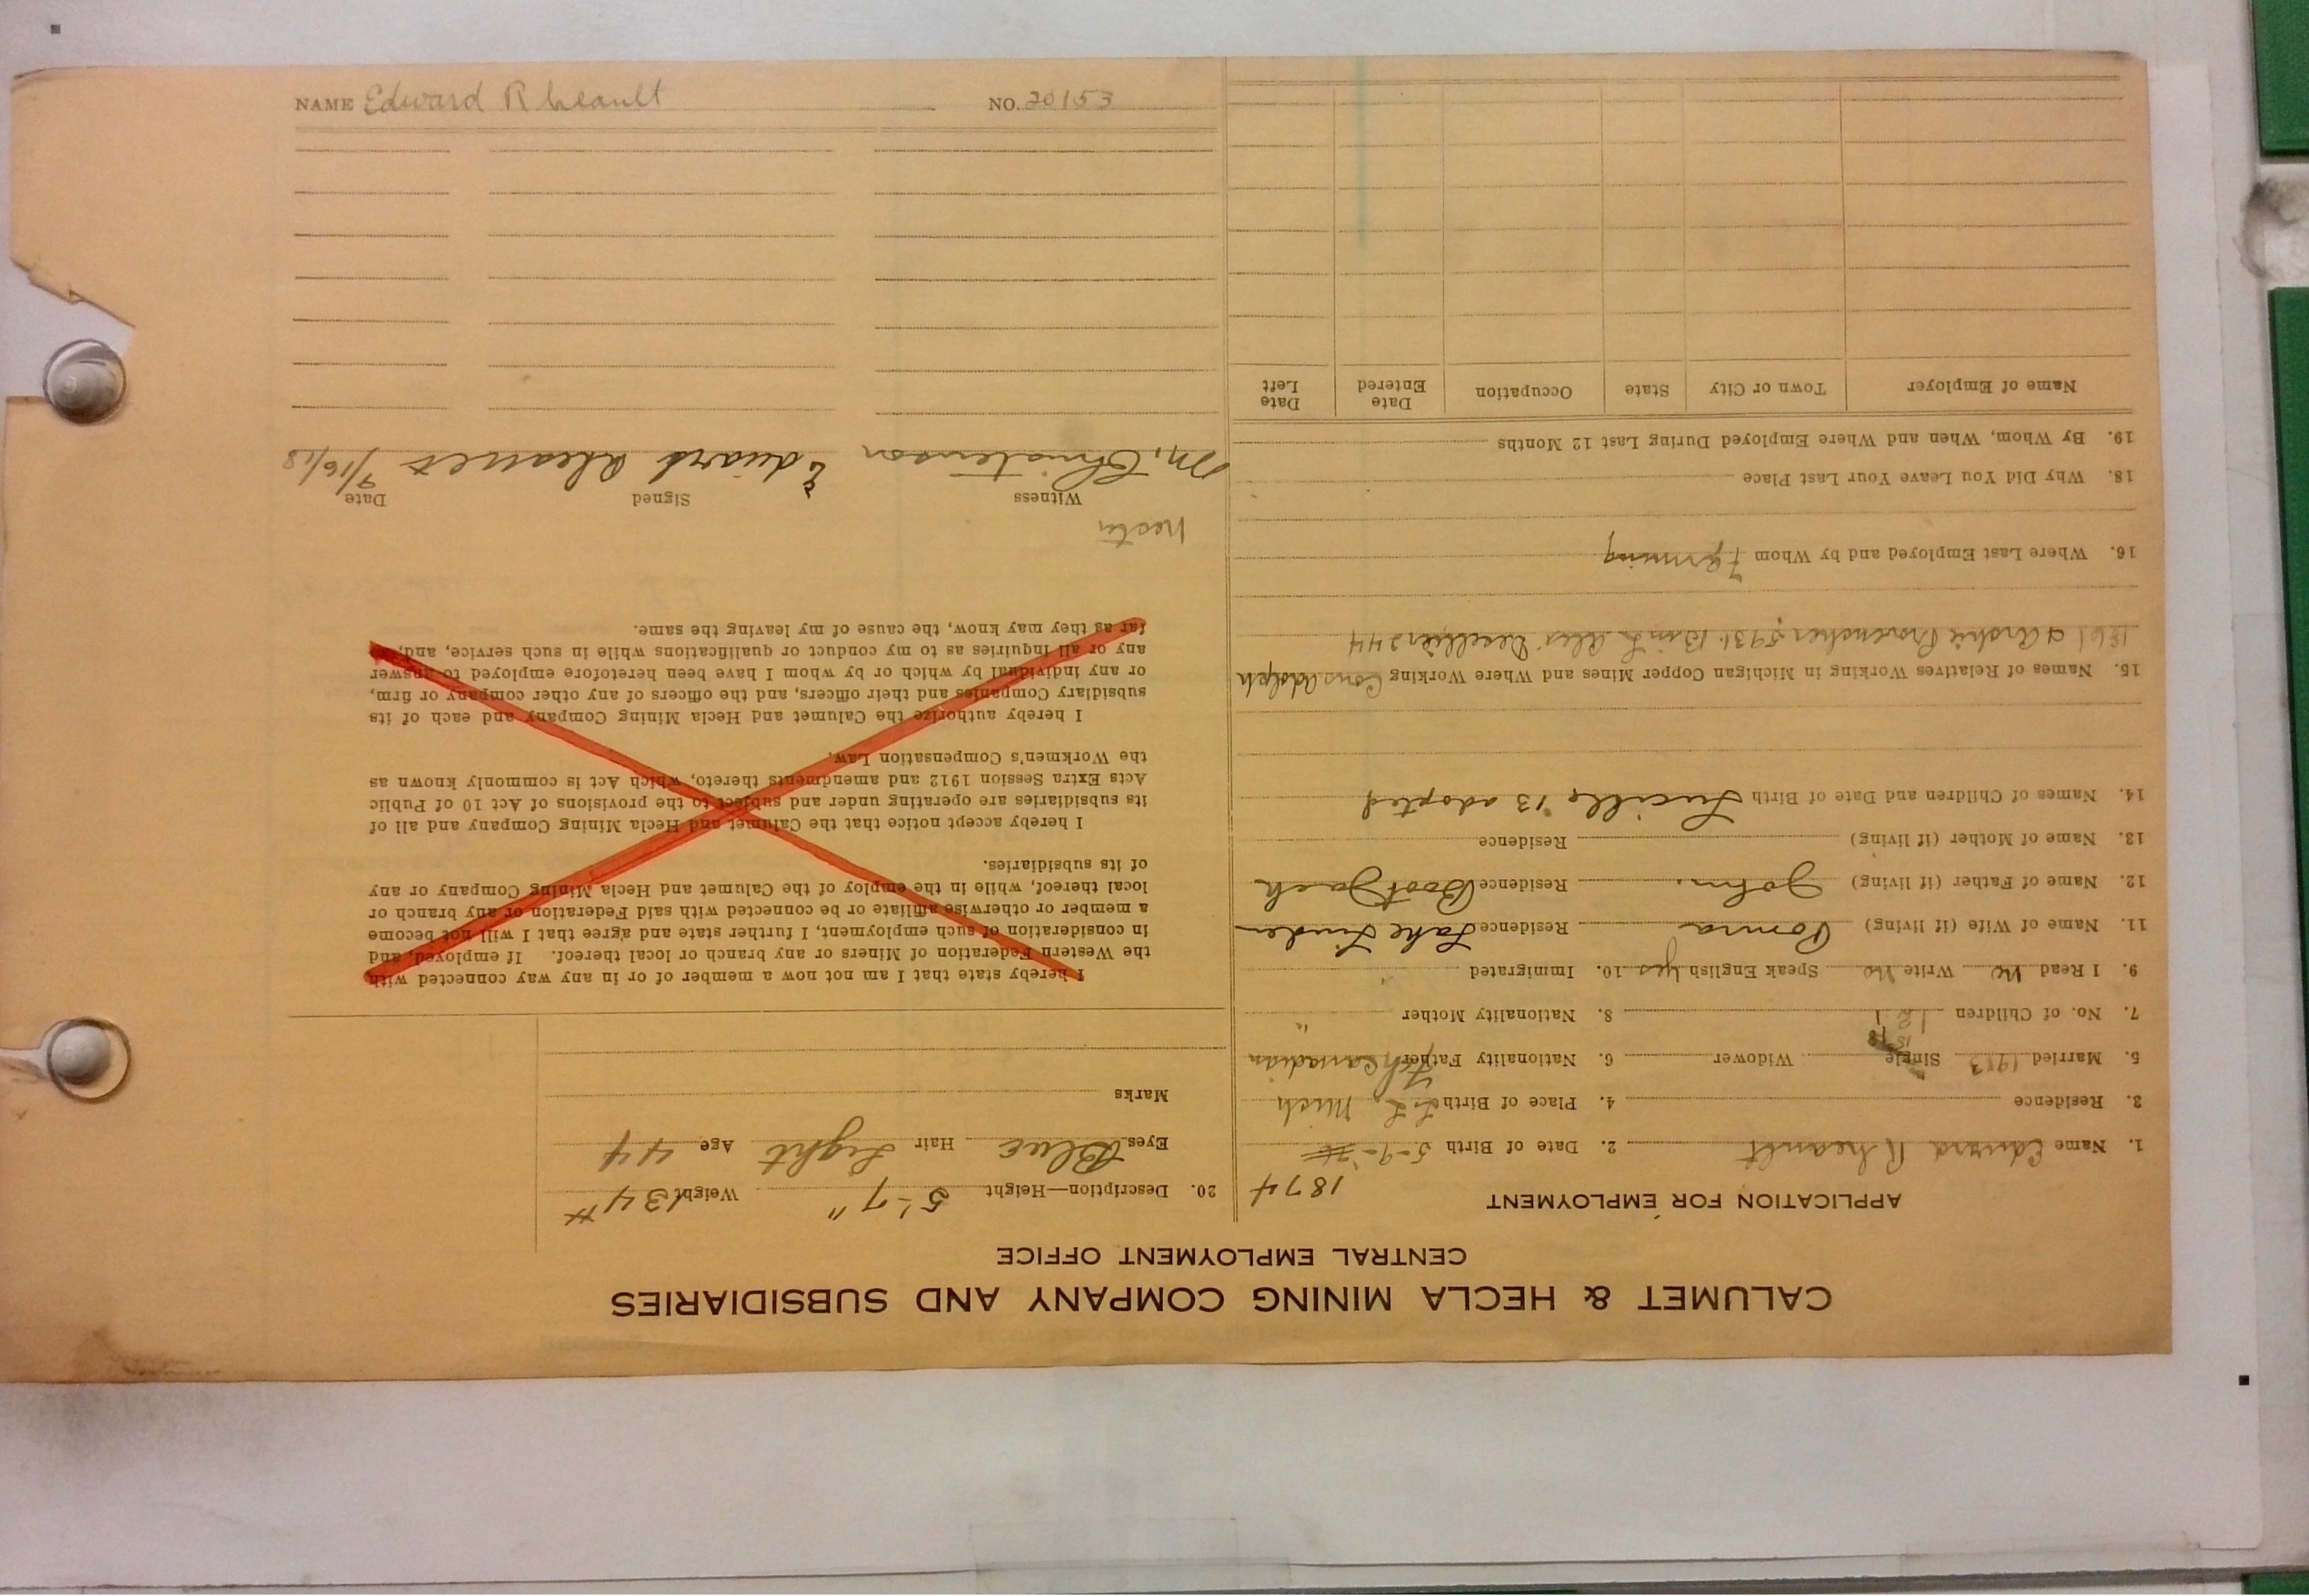 NAME Edward Rheault NO. 20153
CALUMET & HECLA MINING COMPANY AND SUBSIDIARIES
CENTRAL EMPLOYMENT OFFICE
APPLICATION FOR EMPLOYMENT
1874
1. Name Edward Rheault 2. Date of Birth 5-9-
3. Residence 4. Place of Birth L. L. Mich
5. Married 1913 Single Widower 6. Nationality Father Fch Canadian
7. No. of Children 1 8. Nationality Mother "
9. I Read No Write No Speak English Yes 10. Immigrated
11. Name of Wife (if living) Residence Lake Linden
12. Name of Father (if living) John. Residence Boot Jack
13. Name of Mother (if living) Residence
14. Names of Children and Date of Birth Lucille '13 adopted
15. Names of Relatives Working in Michigan Copper Mines and Where Working Cous. Adolph
1861 & Archie Provencher 5931. Alex 244
16. Where Last Employed and by Whom Farming
18. Why Did You Leave Your Last Place
19. By Whom, When and Where Employed During Last 12 Months
Name of Employer Town or City State Occupation Date Entered Date Left
20. Description—Height 5'-7" Weight 134#
Eyes Blue Hair Light Age 44
Marks
I hereby state that I am not now a member of or in any way connected with
the Western Federation of Miners or any branch or local thereof. If employed, and
in consideration of such employment, I further state and agree that I will not become
a member or otherwise affiliate or be connected with said Federation or any branch or
local thereof, while in the employ of the Calumet and Hecla Mining Company or any
of its subsidiaries.
I hereby accept notice that the Calumet and Hecla Mining Company and all of
its subsidiaries are operating under and subject to the provisions of Act 10 of Public
Acts Extra Session 1912 and amendments thereto, which Act is commonly known as
the Workmen's Compensation Law.
I hereby authorize the Calumet and Hecla Mining Company and each of its
subsidiary Companies and their officers, and the officers of any other company or firm,
or any individual by which or by whom I have been heretofore employed to answer
any or all inquiries as to my conduct or qualifications while in such service, and, as
far as they may know, the cause of my leaving the same.
Witness Signed Date
M. Christenson Edward Rheault 9/16/18